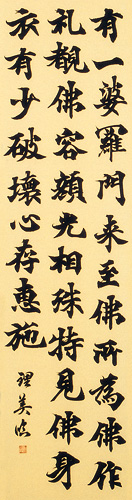 有一婆羅門来至佛所為佛作
礼觀佛容顔光相殊特見佛身
衣有少破壞心存惠施
理英